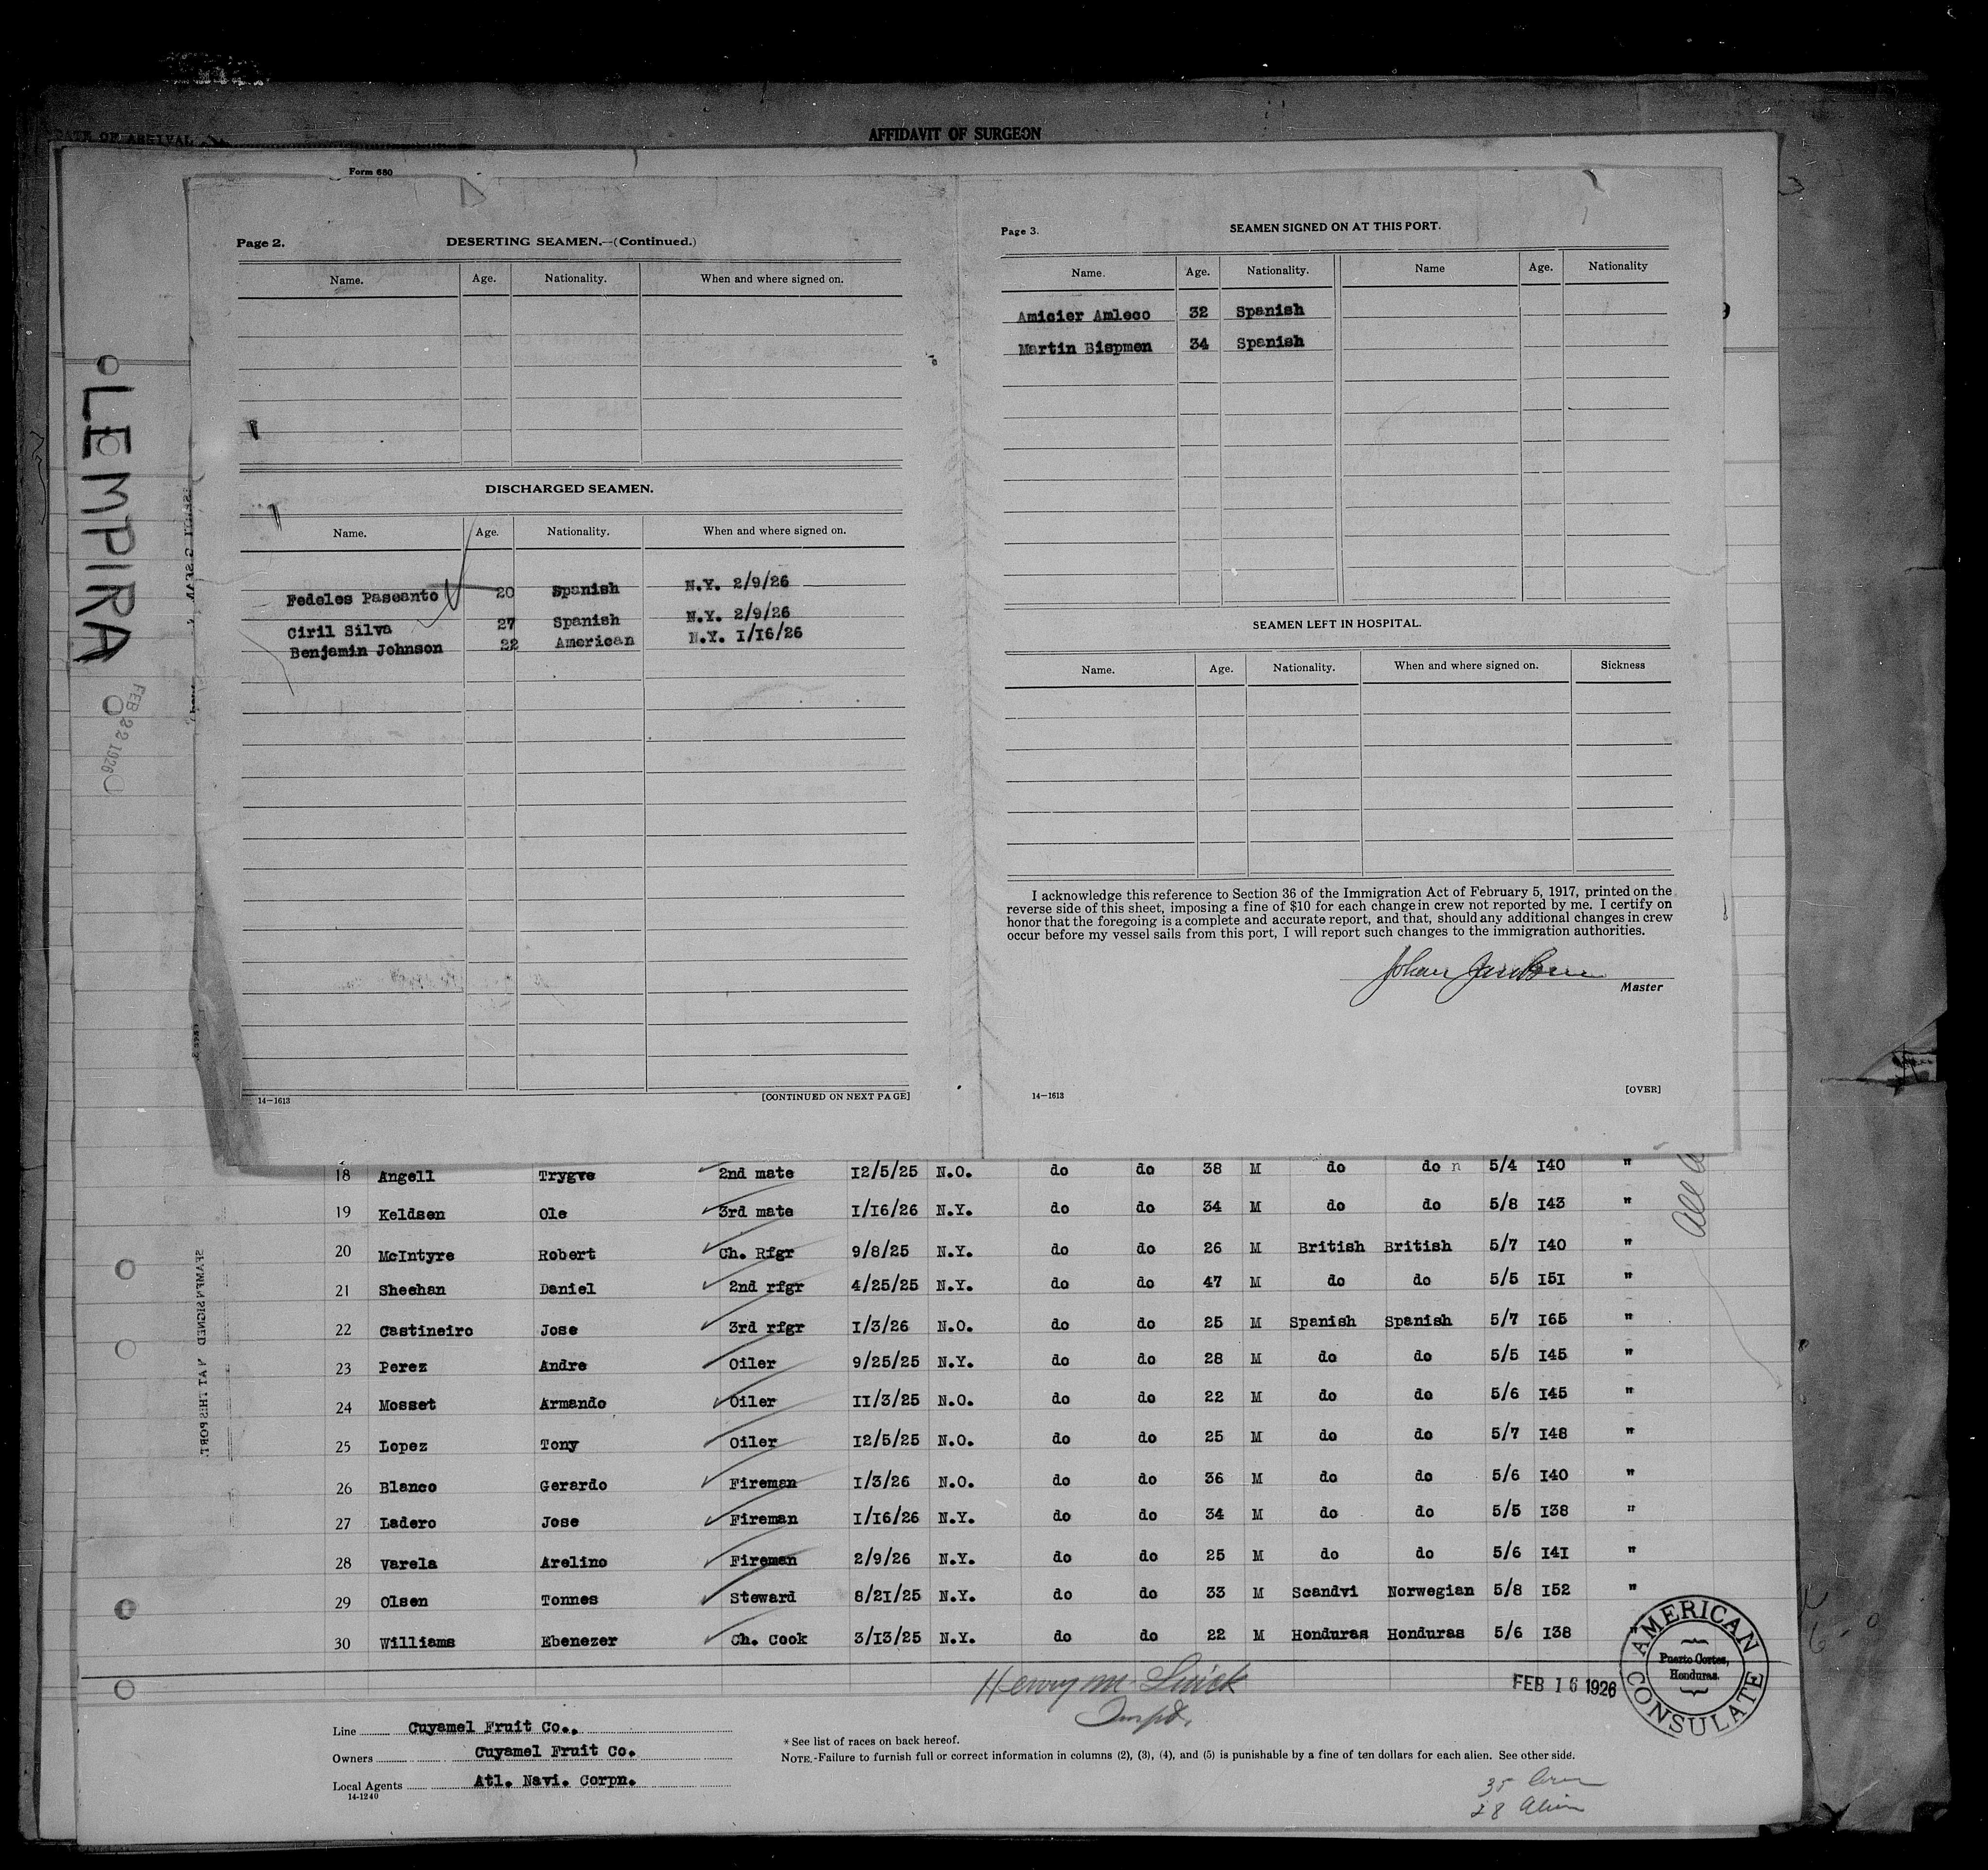 DATE OF ARRIVAL
AFFIDAVIT OF SURGEON
Form 680
LEMPIRA
FEB 22 1926
Page 2.
DESERTING SEAMEN.—(Continued.)
Name. Age. Nationality. When and where signed on.
DISCHARGED SEAMEN.
Name. Age. Nationality. When and where signed on.
Fedeles Paseanto 20 Spanish N.Y. 2/9/26
Ciril Silva 27 Spanish N.Y. 2/9/26
Benjamin Johnson 22 American N.Y. 1/16/26
14—1613
[CONTINUED ON NEXT PAGE]
Page 3.
SEAMEN SIGNED ON AT THIS PORT.
Name. Age. Nationality. Name Age. Nationality
Amicier Amleco 32 Spanish
Martin Bispmen 34 Spanish
SEAMEN LEFT IN HOSPITAL.
Name. Age. Nationality. When and where signed on. Sickness
I acknowledge this reference to Section 36 of the Immigration Act of February 5, 1917, printed on the
reverse side of this sheet, imposing a fine of $10 for each change in crew not reported by me. I certify on
honor that the foregoing is a complete and accurate report, and that, should any additional changes in crew
occur before my vessel sails from this port, I will report such changes to the immigration authorities.
Johan
Master
14—1613
[OVER]
18 Angell Trygve 2nd mate 12/5/25 N.O. do do 38 M do do n 5/4 140 "
19 Keldsen Ole 3rd mate 1/16/26 N.Y. do do 34 M do do 5/8 143 "
20 McIntyre Robert Ch. Rfgr 9/8/25 N.Y. do do 26 M British British 5/7 140 "
21 Sheehan Daniel 2nd rfgr 4/25/25 N.Y. do do 47 M do do 5/5 151 "
22 Castineiro Jose 3rd rfgr 1/3/26 N.O. do do 25 M Spanish Spanish 5/7 165 "
23 Perez Andre Oiler 9/25/25 N.Y. do do 28 M do do 5/5 145 "
24 Mosset Armando Oiler 11/3/25 N.O. do do 22 M do do 5/6 145 "
25 Lopez Tony Oiler 12/5/25 N.O. do do 25 M do do 5/7 148 "
26 Blanco Gerardo Fireman 1/3/26 N.O. do do 36 M do do 5/6 140 "
27 Ladero Jose Fireman 1/16/26 N.Y. do do 34 M do do 5/5 138 "
28 Varela Arelino Fireman 2/9/26 N.Y. do do 25 M do do 5/6 141 "
29 Olsen Tonnes Steward 8/21/25 N.Y. do do 33 M Scandvi Norwegian 5/8 152 "
30 Williams Ebenezer Ch. Cook 3/13/25 N.Y. do do 22 M Honduras Honduras 5/6 138
All
SEAMEN SIGNED N AT THIS PORT.
Henry M
FEB 16 1926
AMERICAN CONSULATE
Puerto Cortes,
Honduras.
Line Cuyamel Fruit Co.,
Owners Cuyamel Fruit Co.
Local Agents Atl. Navi. Corpn.
14-1240
*See list of races on back hereof.
NOTE.-Failure to furnish full or correct information in columns (2), (3), (4), and (5) is punishable by a fine of ten dollars for each alien. See other side.
35 Crew
28 Alien